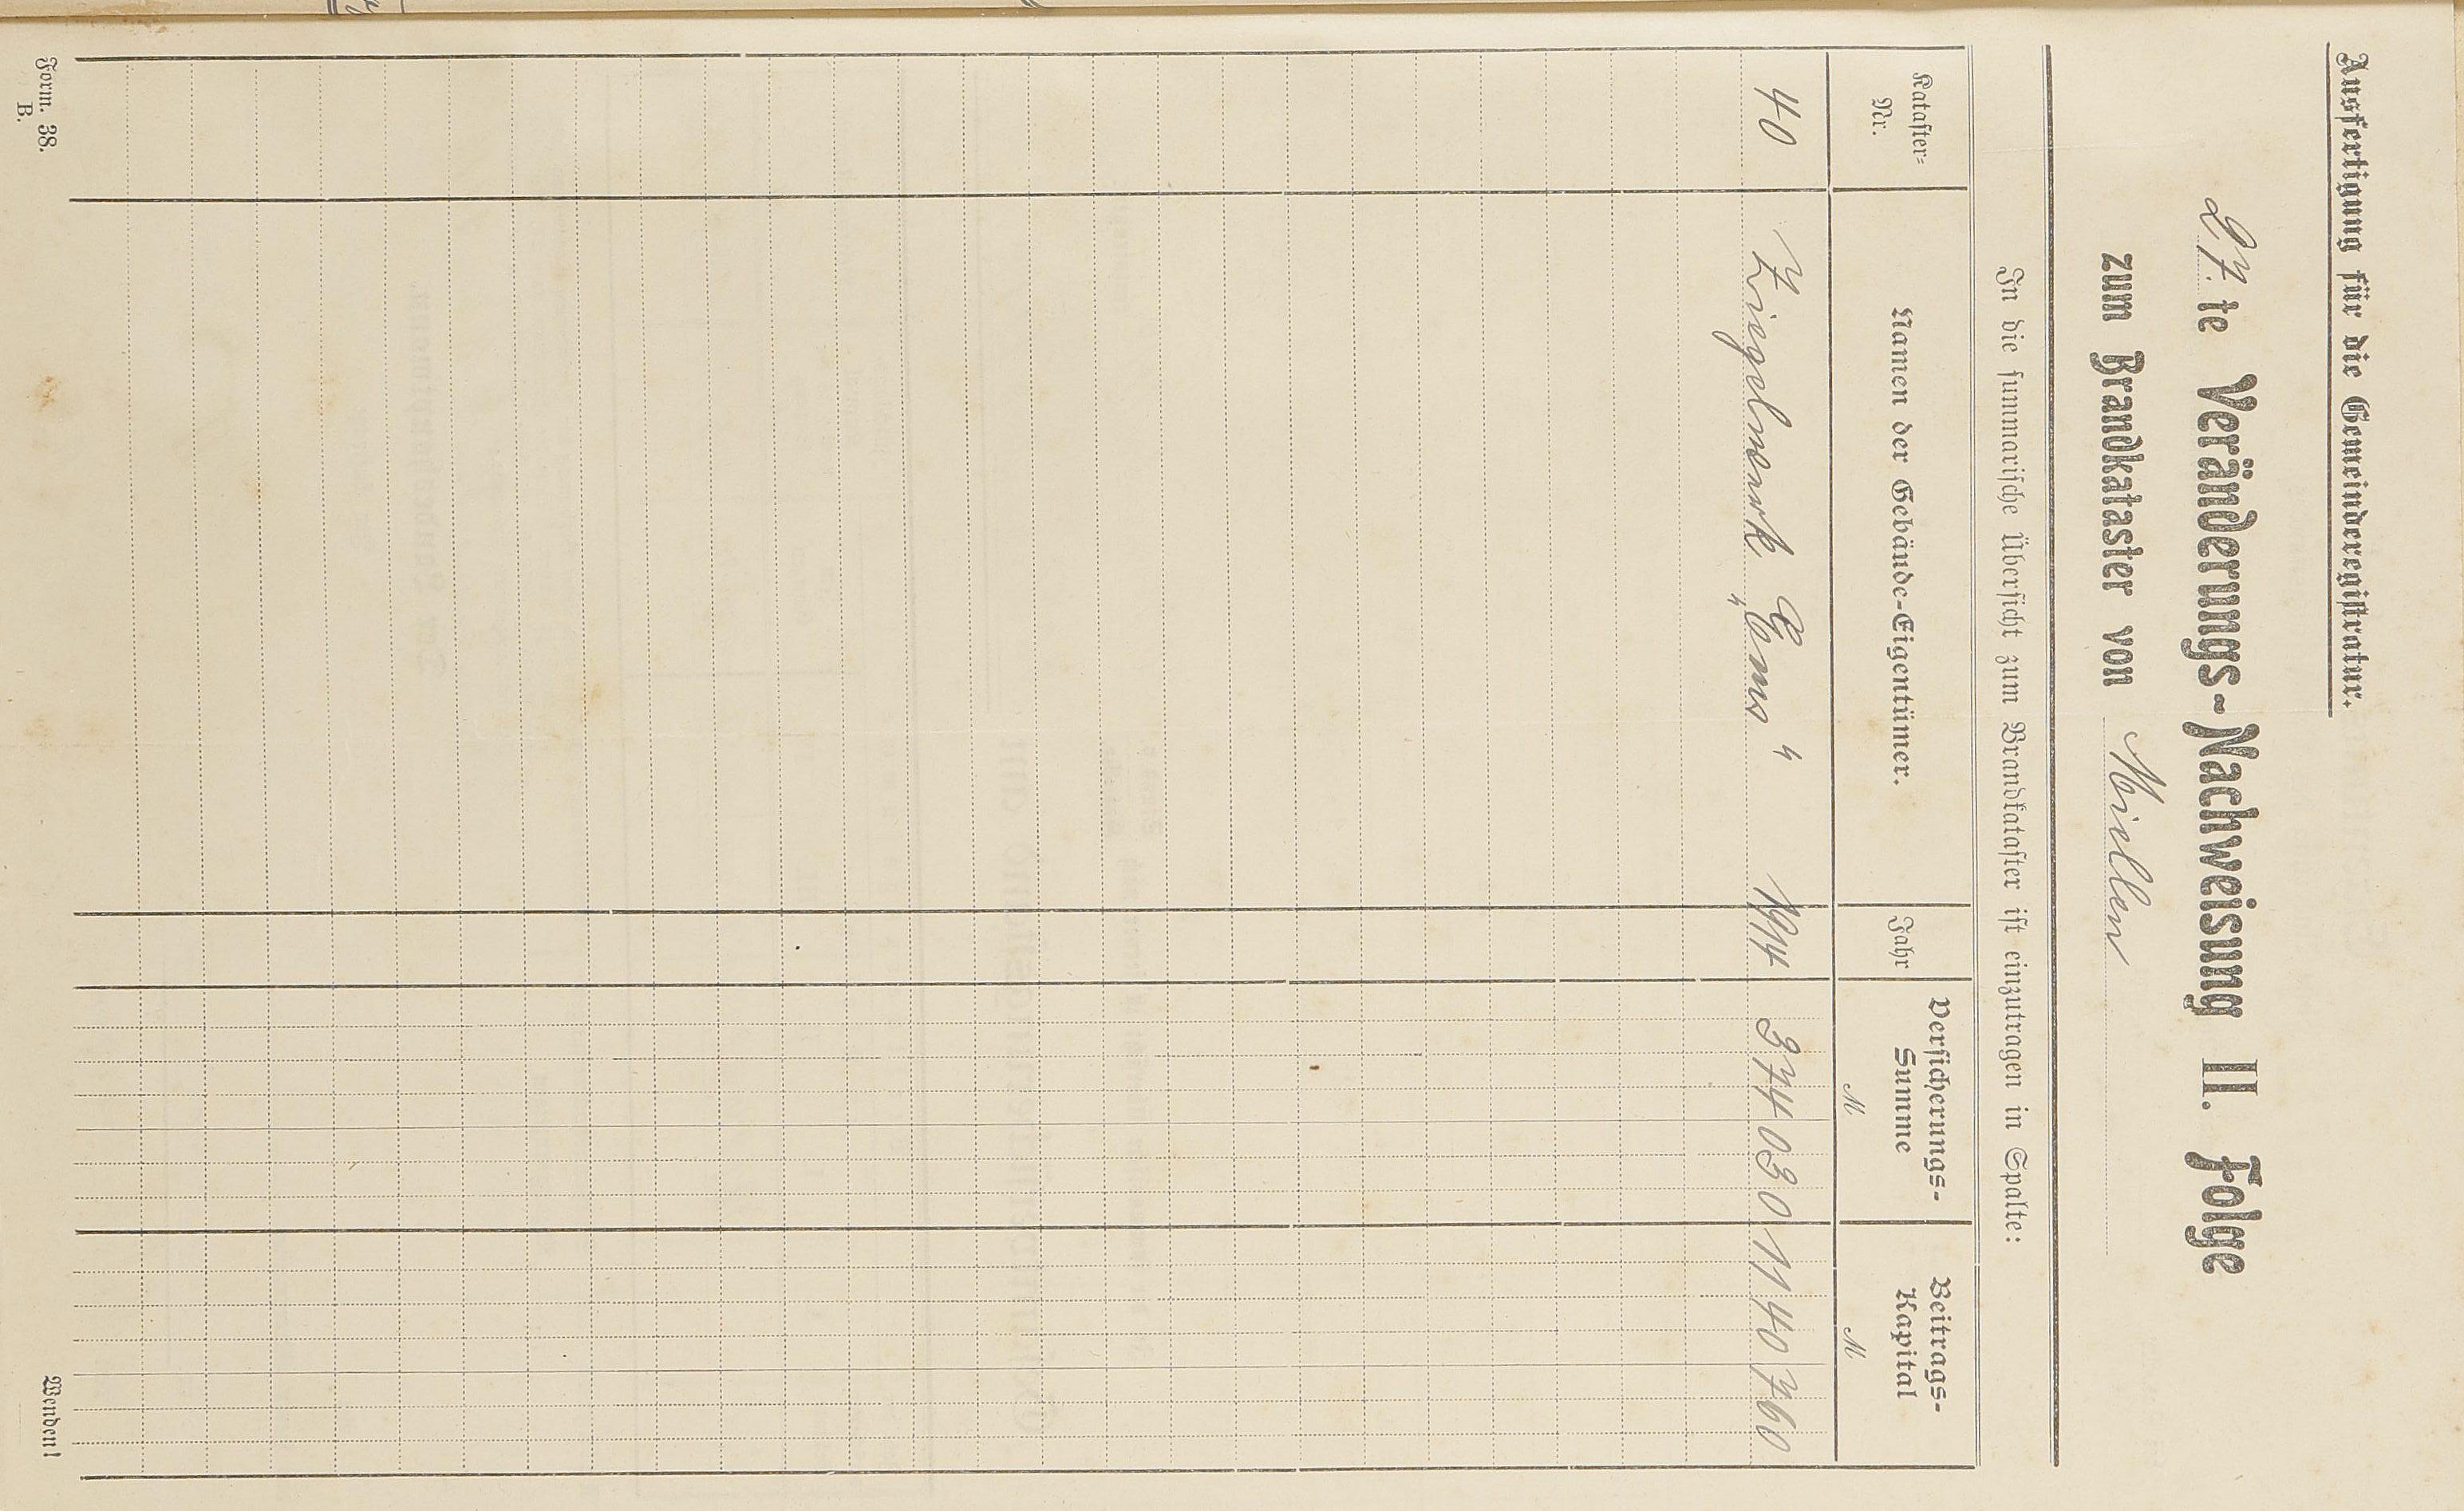 Ausfertigung für die Gemeinderegistratur.
27. te Veränderungs-Nachweisung II. Folge
zum Brandkataster von Miellen
In die summarische Übersicht zum Brandkataster ist einzutragen in Spalte:
Kataster-
Nr.
Namen der Gebäude-Eigentümer.
Jahr
Versicherungs-
Summe
M
Beitrags-
Kapital
M
40 Zingelwerk „Ems" 1914 374 030 1140 760
Form. 38.
B.
Wenden!